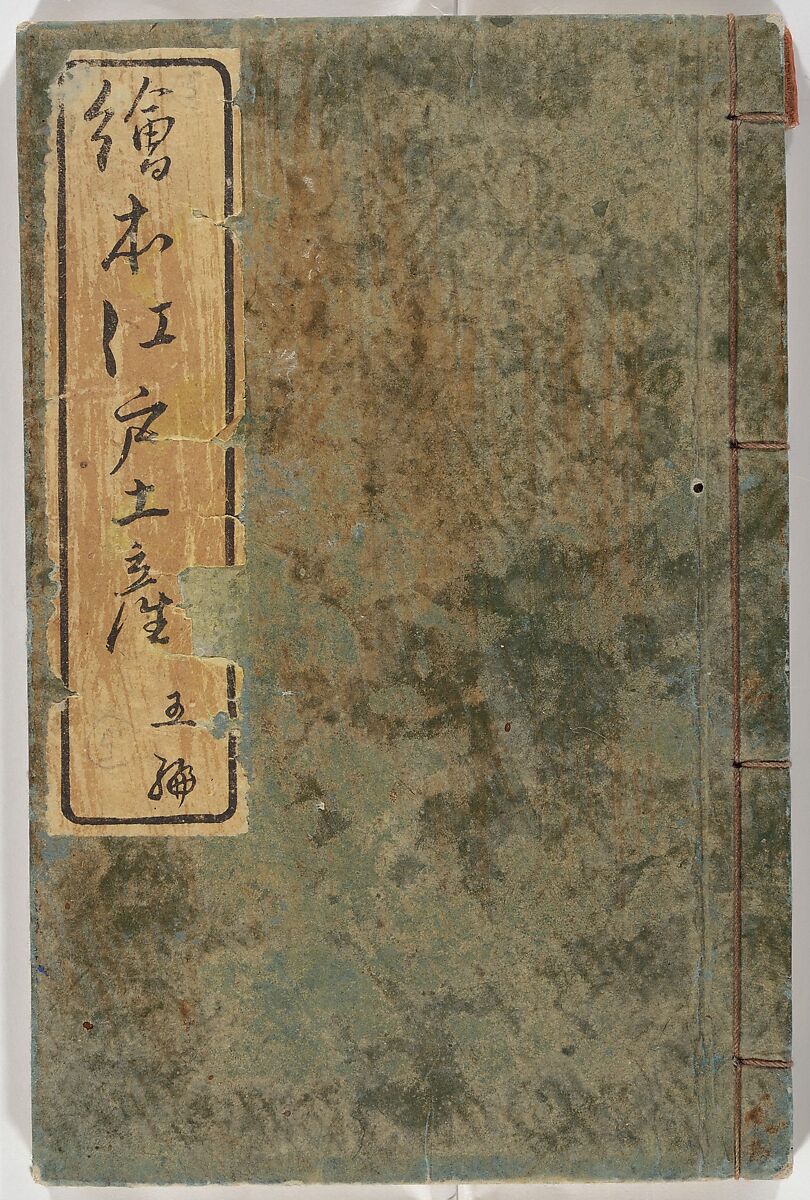 繪本江戸土産
五編